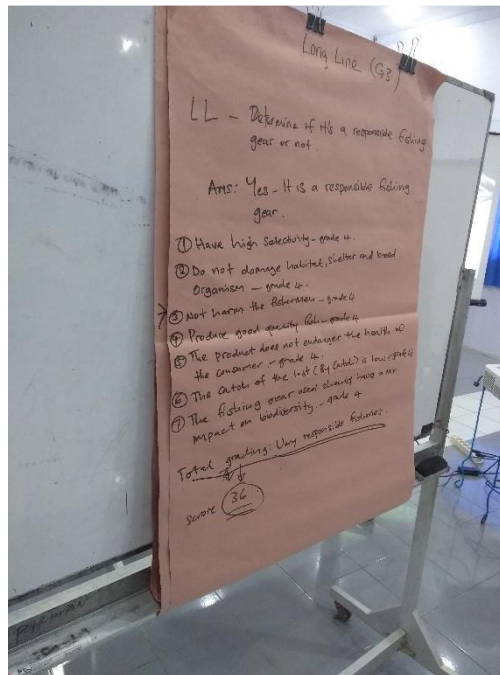 Long Line (G3)
LL - Determine if it's a responsible fishing
gear or not.
Ans: Yes - It is a responsible fishing
gear.
① Have high selectivity - grade 4.
② Do not damage habitat, shelter and breed
Organism - grade 4.
③ Not harm the fishermen - grade 4
④ Produce good quality fish - grade 4
⑤ The product does not endanger the health of
the consumer. - grade 4.
⑥ The catch of the lost (By catch) is low - grade 4
⑦ The fishing gear used should have a min.
impact on biodiversity. - grade 4
Total grading: Very responsible fisheries.
score 36